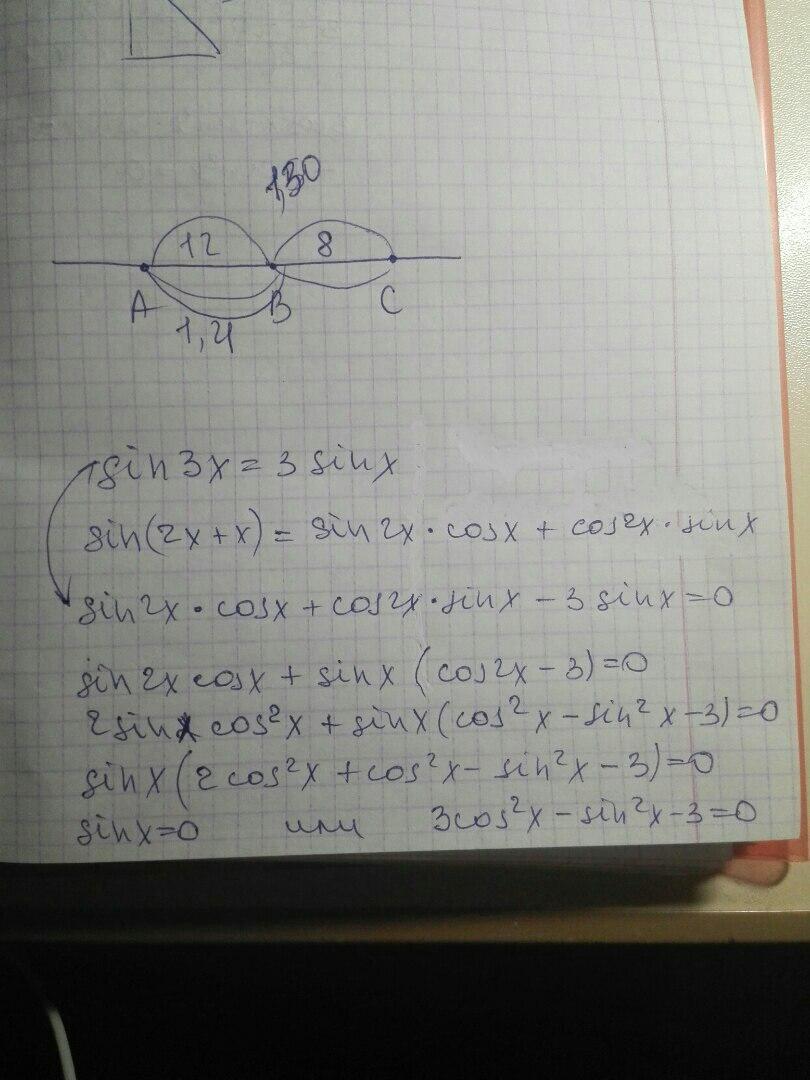 1,50
12 8
A B C
1,4
sin 3x = 3 sin x
sin(2x + x) = sin 2x · cos x + cos 2x · sin x
sin 2x · cos x + cos 2x · sin x − 3 sin x = 0
sin 2x cos x + sin x (cos 2x − 3) = 0
2 sin x cos² x + sin x (cos² x − sin² x − 3) = 0
sin x (2 cos² x + cos² x − sin² x − 3) = 0
sin x = 0 или 3 cos² x − sin² x − 3 = 0